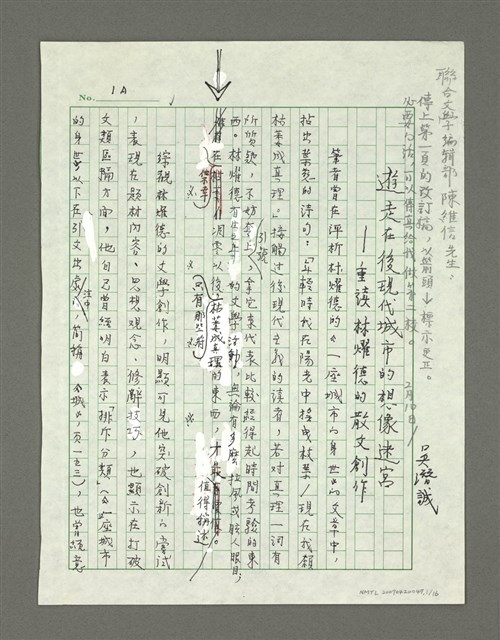 聯合文學編輯部 陳維信先生:
傳上第一頁的改訂稿,以箭頭↓標示更正。
必要的話,可以傳真給我做第二校。
2月10日
吳潛誠
No. 1A
遊走在後現代城市的想像迷宮
—重讀林燿德的散文創作
筆者曾在評析林燿德的《一座城市的身世》的文章中,
拈出葉慈的詩句:「年輕時我在陽光中搖曳枝葉/現在我願
枯萎成真理。」接觸過後現代主義的讀者,若對真理一詞有
所質疑,不妨 引號 拿它來代表比較經得起時間考驗的東
西。林燿德 的文學 ,無論有多麼 眩人眼目,
在 凋零以後 枯萎成真理的東西,才
只有那些將
值得稱述。
綜觀林燿德的文學創作,明顯可見他突破創新的嘗試
,表現在題材內容、思想觀念、修辭技巧,也顯示在打破
文類區隔方面,他自己曾經明白表示「排斥分類」(《一座城市
的身世》以下在引文出處 注中 簡稱《城》,頁一三),也曾經意
NMTL20090820049, 1/16